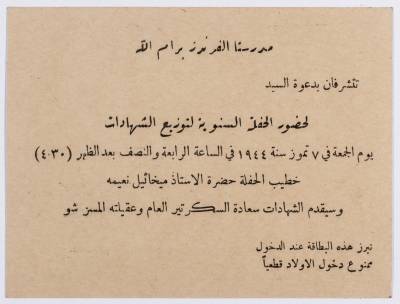 مدرستا الفرندز برام الله
تتشرفان بدعوة السيد
لحضور الحفلة السنوية لتوزيع الشهادات
يوم الجمعة في ٧ تموز سنة ١٩٤٤ في الساعة الرابعة والنصف بعد الظهر (٤٫٣٠)
خطيب الحفلة حضرة الاستاذ ميخائيل نعيمه
وسيقدم الشهادات سعادة السكرتير العام وعقيلته المسز شو
تبرز هذه البطاقة عند الدخول
ممنوع دخول الاولاد قطعياً